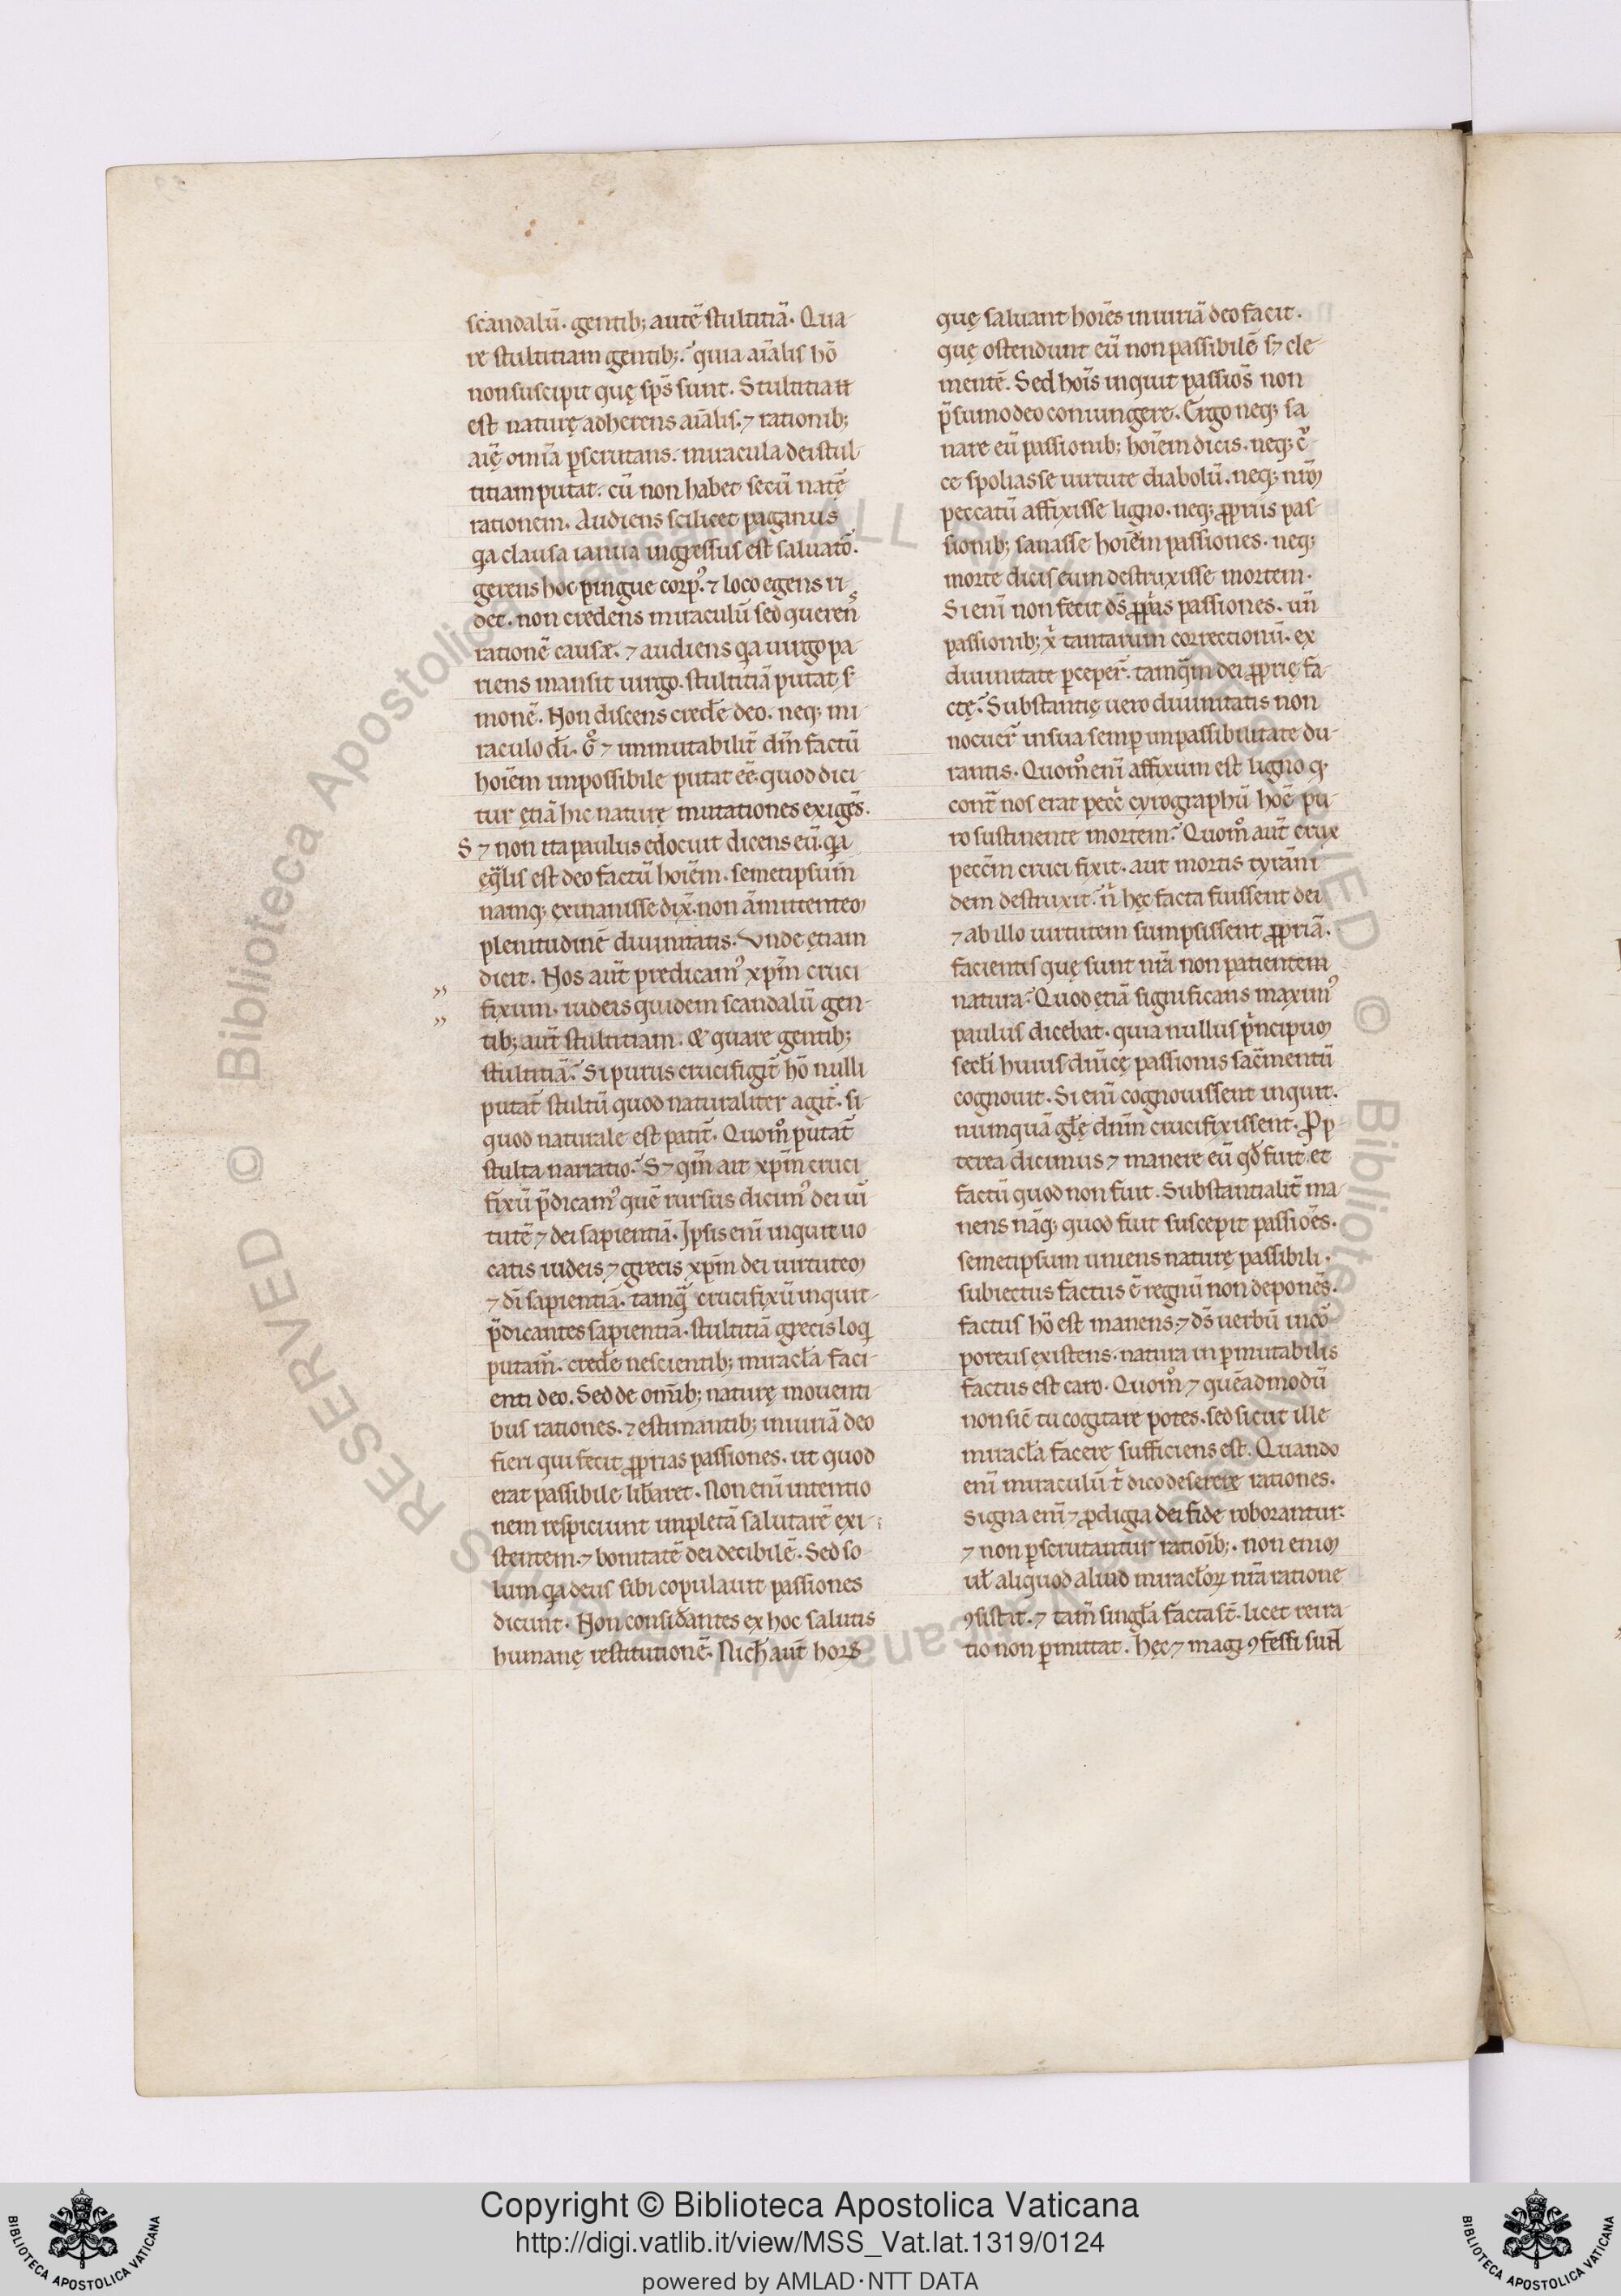 scandalū. gentib; autē stultitiā. Qua
re stultitiam gentib;. quia aīalis hō
non suscipit quę sp̄s sunt. Stultitia
est naturę adherens aīalis. ⁊ rationib;
aīę omīa p̄scrutans. miracula dei stul
titiam putat. cū non habet secū
rationem. Audiens scilicet paganus
qa clausa ianua ingressus est saluatō.
gerens hoc pingue corp᾽. ⁊ loco egens ri
det. non credens miraculū sed queren̄s
rationē causæ. ⁊ audiens qa uirgo pa
riens mansit uirgo. stultitiā putat s̄
monē. Non discens cred̄e deo. neq; mi
raculo d̄i. ⁊ inmutabilit̄ dn̄m factū
hoīem inpossibile putat eē. quod dici
tur etiā hic naturę mutationes exigēs.
S⁊ non ita paulus edocuit dicens eū. qa
ęq̄lis est deo factū hoīem. semetipsum
namq; exinanisse dix̄. non āmittentem
plenitudinē diuinitatis. Vnde ętiam
dicit. Nos aūt predicam᾽ xp̄m cruci
fixum. iudeis quidem scandalū gen
tib; aūt stultitiam. & quare gentib;
stultitiā. Si purus crucifigit̄ hō nulli
putat̄ stultū quod naturaliter agit̄. si
quod naturale est patit̄. Quom̊ putat̄
stulta narratio. S⁊ qm̄ ait xp̄m cruci
fixū p̄dicam᾽ quē rursus dicim᾽ dei uī
tutē ⁊ dei sapientiā. Ipsis enī inquit uo
catis iudeis ⁊ grecis xp̄m dei uirtutem
⁊ dī sapientiā. tamq̄ crucifixū inquit
p̄dicantes sapientiā. stultitiā grecis loq
putam̄. cred̄e nescientib; miracl̄a faci
enti deo. Sed de omīb; naturę mouenti
bus rationes. ⁊ estimantib; iniuriā deo
fieri qui fecit ꝓprias passiones. ut quod
erat passibile lib̄aret. Non enī intentio
nem respiciunt inpletā salutarē exi
stentem. ⁊ bonitatē dei decibilē. Sed so
lum qa deus sibi copulauit passiones
dicunt. Non consid̄antes ex hoc salutis
humanę restitutionē. Nich̄ aūt horꝝ
quę saluant hoīes iniuriā deo facit.
quę ostendunt eū non passibilē s⁊ cle
mentē. Sed hoīs inquit passiōs non
p̄sumo deo coniungere. Ergo neq; sa
nare eū passionib; hoīem dicis. neq; c̄
ce spoliasse uirtute diabolū. neq; nr̄m
peccatū affixisse ligno. neq; ꝓpriis pas
sionib; sanasse hoīem passiones. neq;
morte dicis eum destruxisse mortem.
Si enī non fecit d̄s ꝓprias passiones. un̄
passionib; tantarum correctionū. ex
diuinitate p̄ceper̄. tamq̄m dei ꝓprię fa
ctę. Substantię uero diuinitatis non
nocuer̄ in sua semp̄ inpassibilitate du
rantis. Quom̊ enī affixum est ligno q
cont̄ nos erat pecc̄ cyrographū hoīe pu
ro sustinente mortem. Quom̊ aūt crux
pecc̄m cruci fixit. aut mortis tyrāni
dem destruxit. n̄ hęc facta fuissent dei
⁊ ab illo uirtutem sumpsissent ꝓpriā.
facientis quę sunt nr̄a non patientem
natura. Quod ętiā significans maxim᾽
paulus dicebat. quia nullus p̄ncipum
secl̄i huius dn̄icę passionis sac̄mentū
cognouit. Si enī cognouissent inquit.
numquā gl̄ę dnm̄ crucifixissent. Ꝓp
terea dicimus ⁊ manere eū qd̄ fuit. et
factū quod non fuit. Substantialit̄ ma
nens nāq; quod fuit suscepit passiōes.
semetipsum uniens naturę passibili.
subiectus factus ē regnū non deponēs.
factus hō est manens. ⁊ d̄s uerbū incō
poreus existens. natura inp̄mutabilis
factus est caro. Quom̊ ⁊ quēadmodū
non sic̄ tu cogitare potes. sed sicut ille
miracl̄a facere sufficiens est. Quando
enī miraculū dico deserere rationes.
Signa enī ⁊ ꝓdigia dei fide roborantur.
⁊ non p̄scrutantur ratioīb;. non enim
ul̄ aliquod aliud miracl̄oꝝ nr̄a ratione
ꝯsistit. ⁊ tam̄ singl̄a facta st̄. licet rei ra
tio non p̄mittat. hęc ⁊ magi ꝯfessi sun̄t
Copyright © Biblioteca Apostolica Vaticana
http://digi.vatlib.it/view/MSS_Vat.lat.1319/0124
powered by AMLAD·NTT DATA
BIBLIOTECA APOSTOLICA VATICANA
BIBLIOTECA APOSTOLICA VATICANA